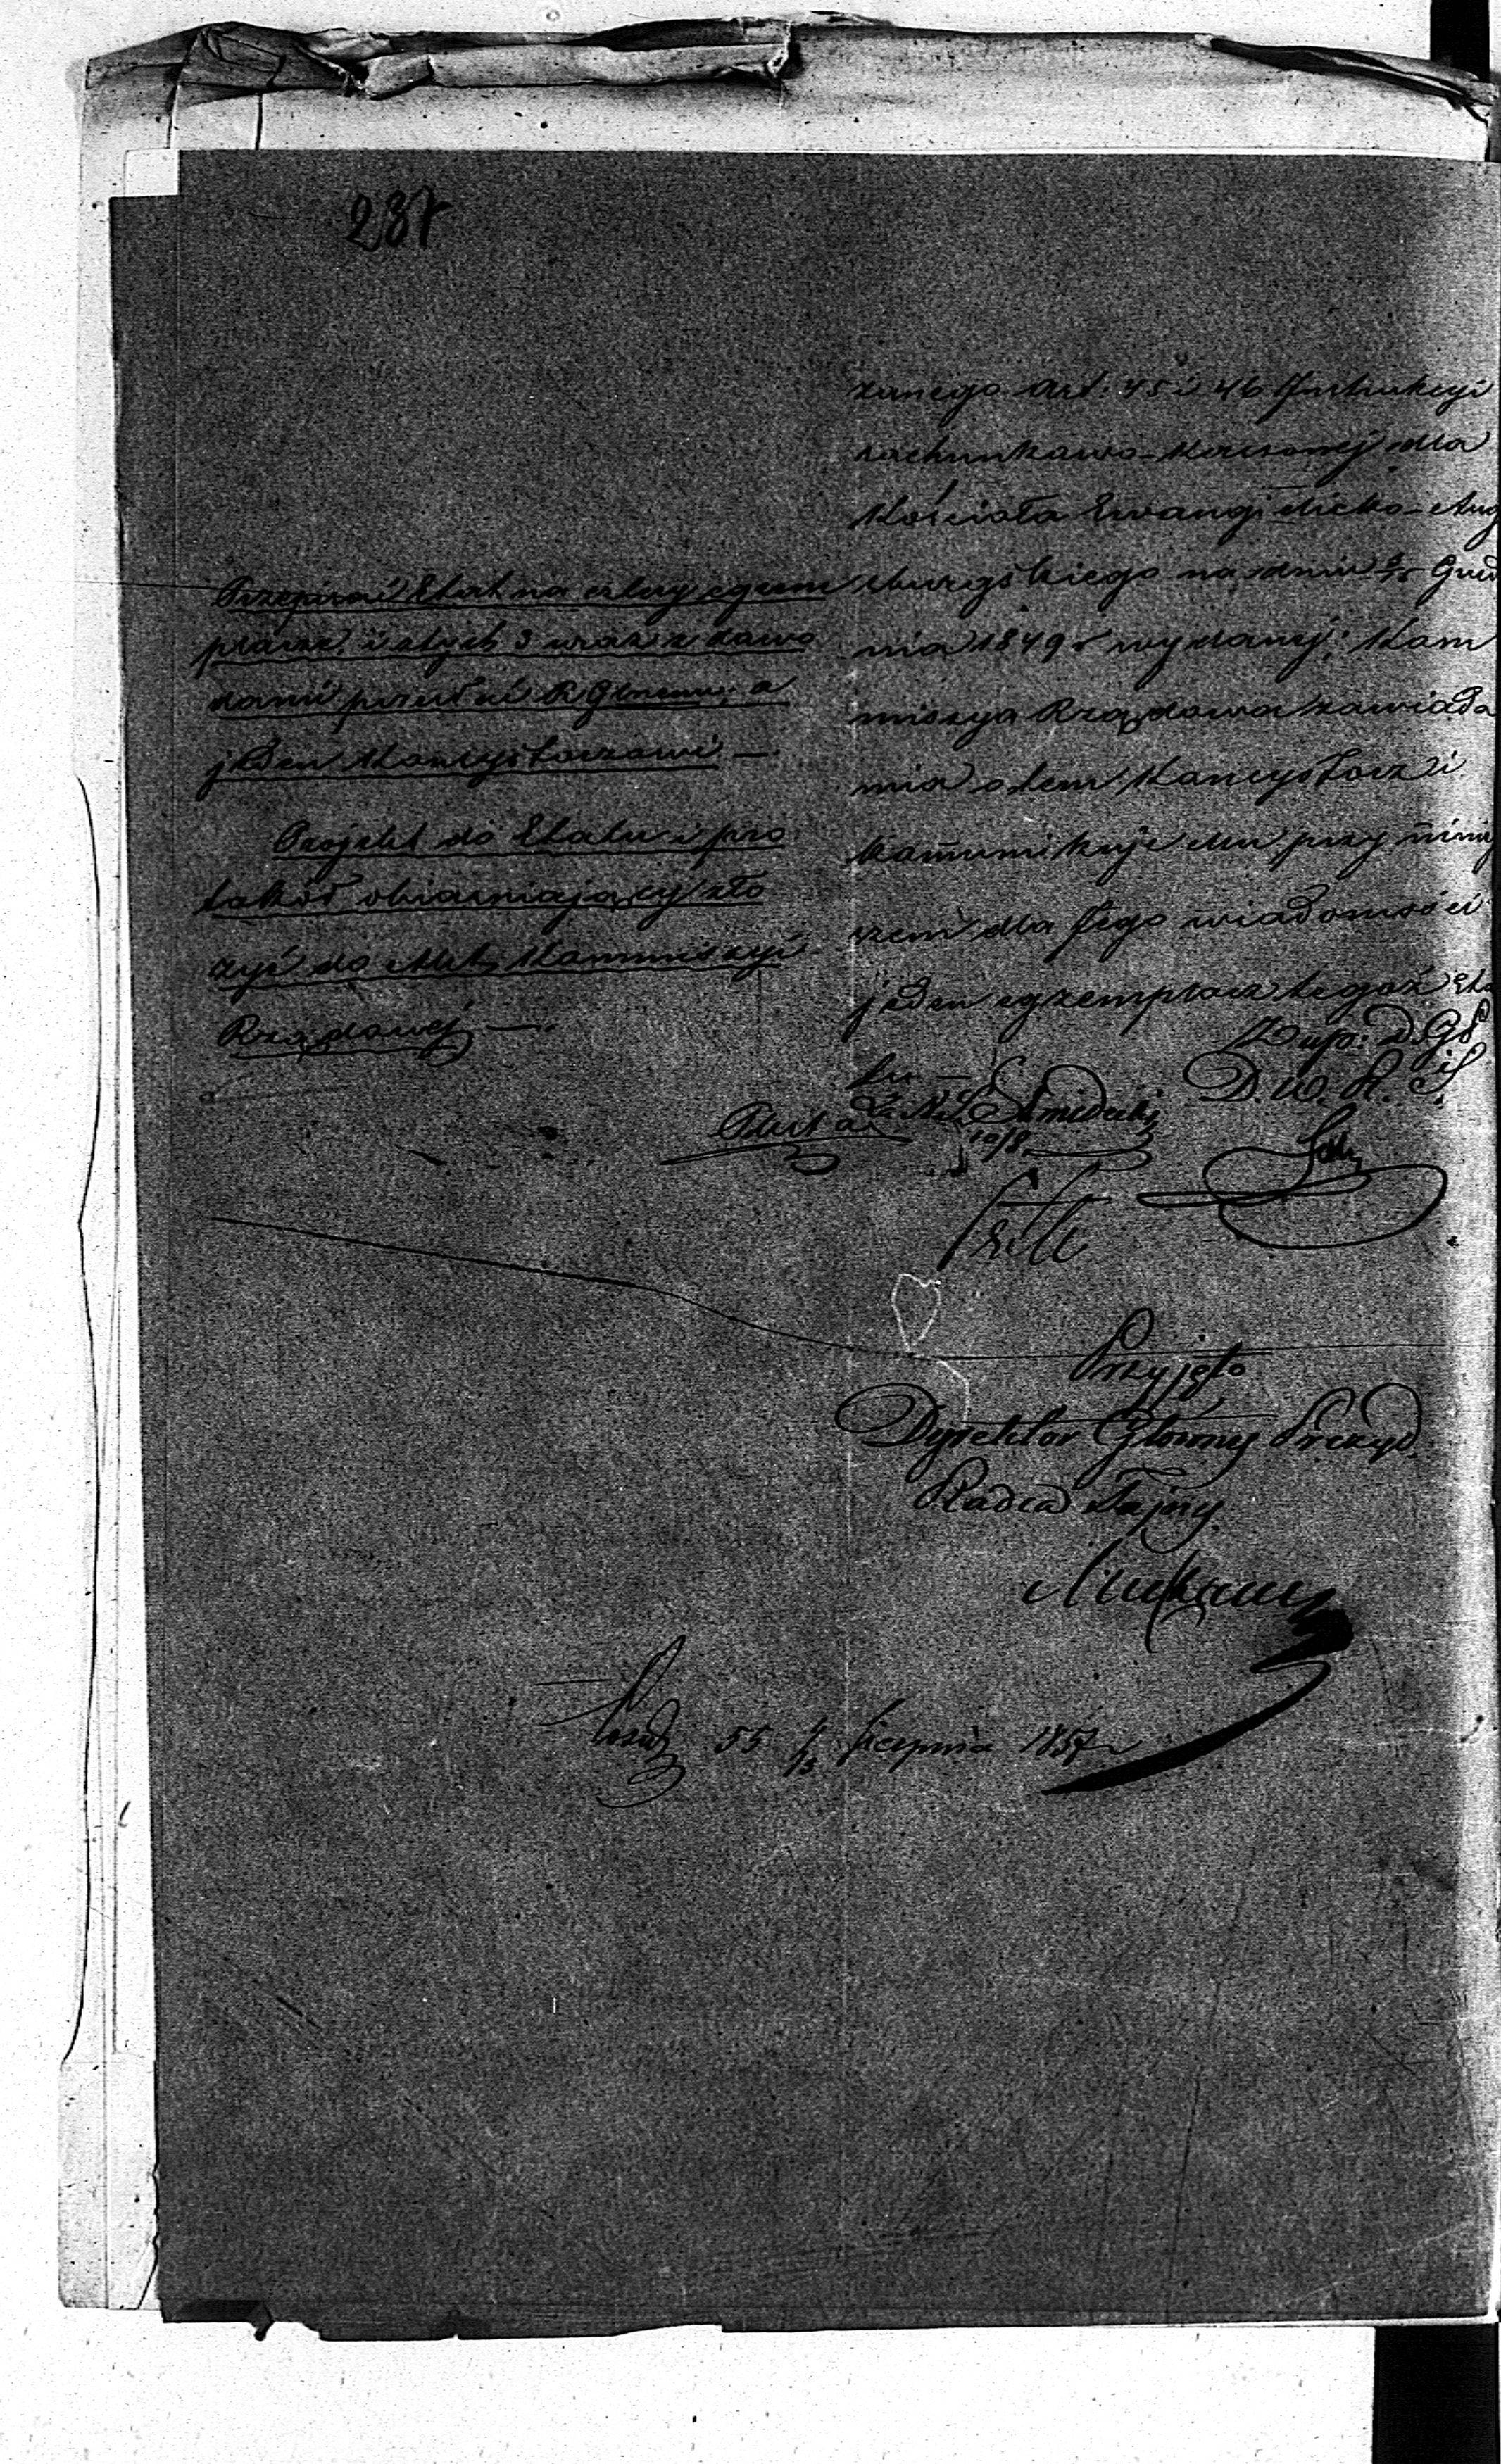 237
Przepisać Etat na cztery egzem
plarze, i z tych 3 wraz z dowo
dami przesłać R Głównemu; a
jeden Konsystorzowi —
Projekt do Etatu i pro
tokół obiaśniający zło
żyć do Akt Kommissyi
Rządowej —
zanego Art: 45 i 46 Instrukcyi
rachunkowo-kassowej dla
Kościoła Ewangielicko-Aug
sburgskiego na dniu Grud
nia 1849 r wydanej; Kom
missya Rządowa zawiada
mia o tem Konsystorz i
kommunikuje mu przy niniej
szem dla Jego wiadomości
jeden egzemplarz tegoż Eta
tu —
D. W. R.
10/8
Przyjęto
Dyrektor Główny Prezyd.
Radca Tajny
55 Sierpnia 1857 r